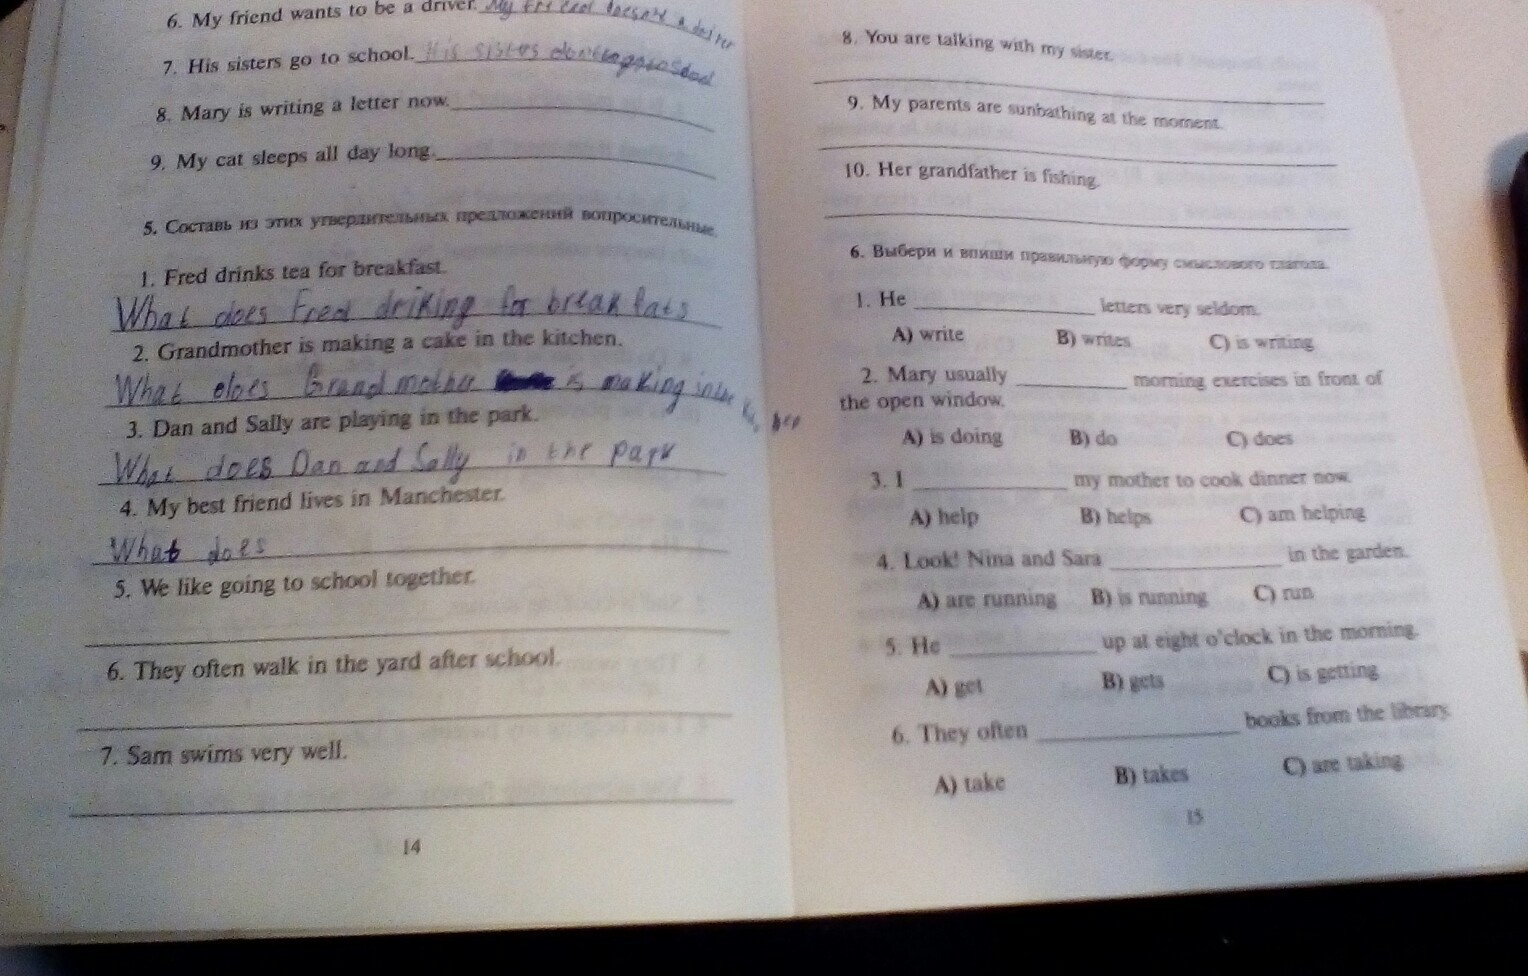 6. My friend wants to be a driver. My friend doesn't a
7. His sisters go to school. His sistes don't
8. Mary is writing a letter now.
9. My cat sleeps all day long.
5. Составь из этих утвердительных предложений вопросительные.
1. Fred drinks tea for breakfast.
What does Fred driking for break fats
2. Grandmother is making a cake in the kitchen.
What does Grandmother is making in the
3. Dan and Sally are playing in the park.
What does Dan and Sally in the park
4. My best friend lives in Manchester.
What does
5. We like going to school together.
6. They often walk in the yard after school.
7. Sam swims very well.
14
8. You are talking with my sister.
9. My parents are sunbathing at the moment.
10. Her grandfather is fishing.
6. Выбери и впиши правильную форму смыслового глагола.
1. He letters very seldom.
A) write B) writes C) is writing
2. Mary usually morning exercises in front of
the open window.
A) is doing B) do C) does
3. I my mother to cook dinner now.
A) help B) helps C) am helping
4. Look! Nina and Sara in the garden.
A) are running B) is running C) run
5. He up at eight o'clock in the morning.
A) get B) gets C) is getting
6. They often books from the library.
A) take B) takes C) are taking
15